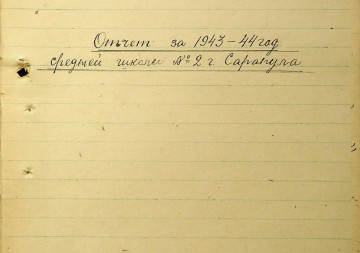 Отчет за 1943-44 год
средней школы № 2 г. Сарапула